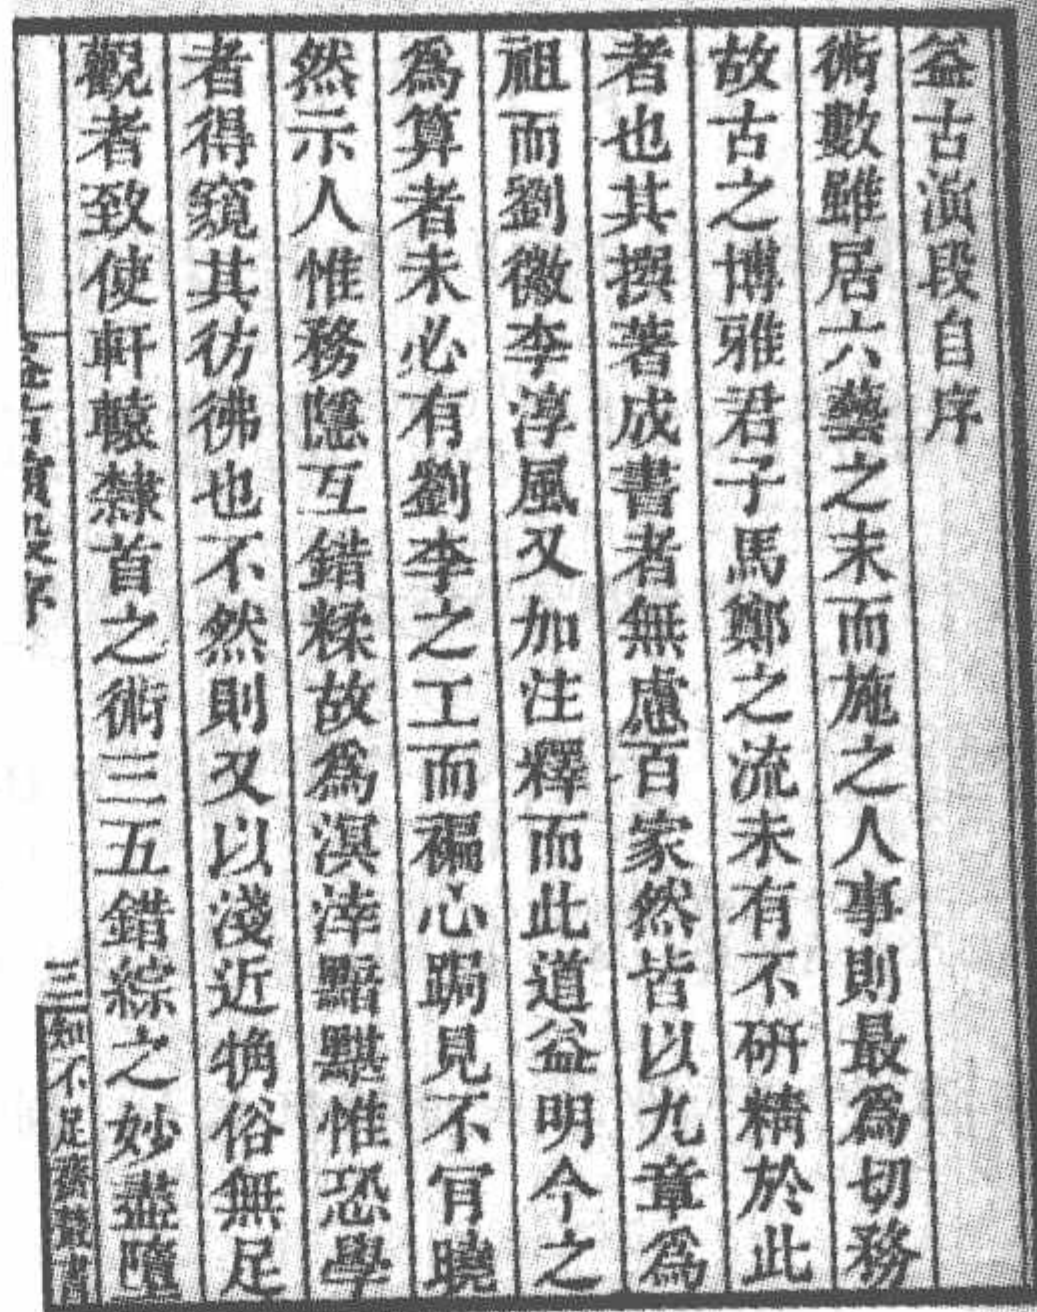 益古演段自序
術數雖居六藝之末而施之人事則最爲切務
故古之博雅君子馬鄭之流未有不硏精於此
者也其撰著成書者無慮百家然皆以九章爲
祖而劉徽李淳風又加注釋而此道益明今之
爲算者未必有劉李之工而褊心跼見不肎曉
然示人惟務隱互錯糅故爲溟涬黯黮惟恐學
者得窺其彷彿也不然則又以淺近觕俗無足
觀者致使軒轅隸首之術三五錯綜之妙盡墮
益古演段序
三
知不足齋叢書